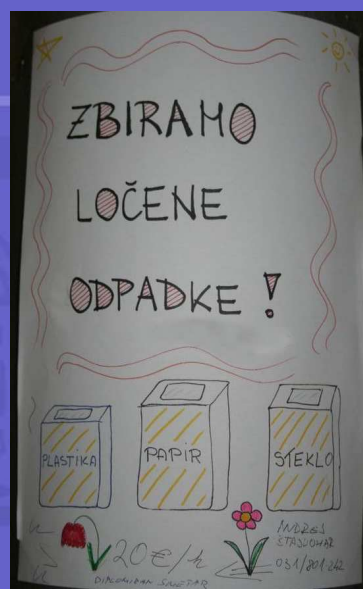 ZBIRAMO
LOČENE
ODPADKE!
PLASTIKA
PAPIR
STEKLO
20€/h
ANDREJ
031/801 242